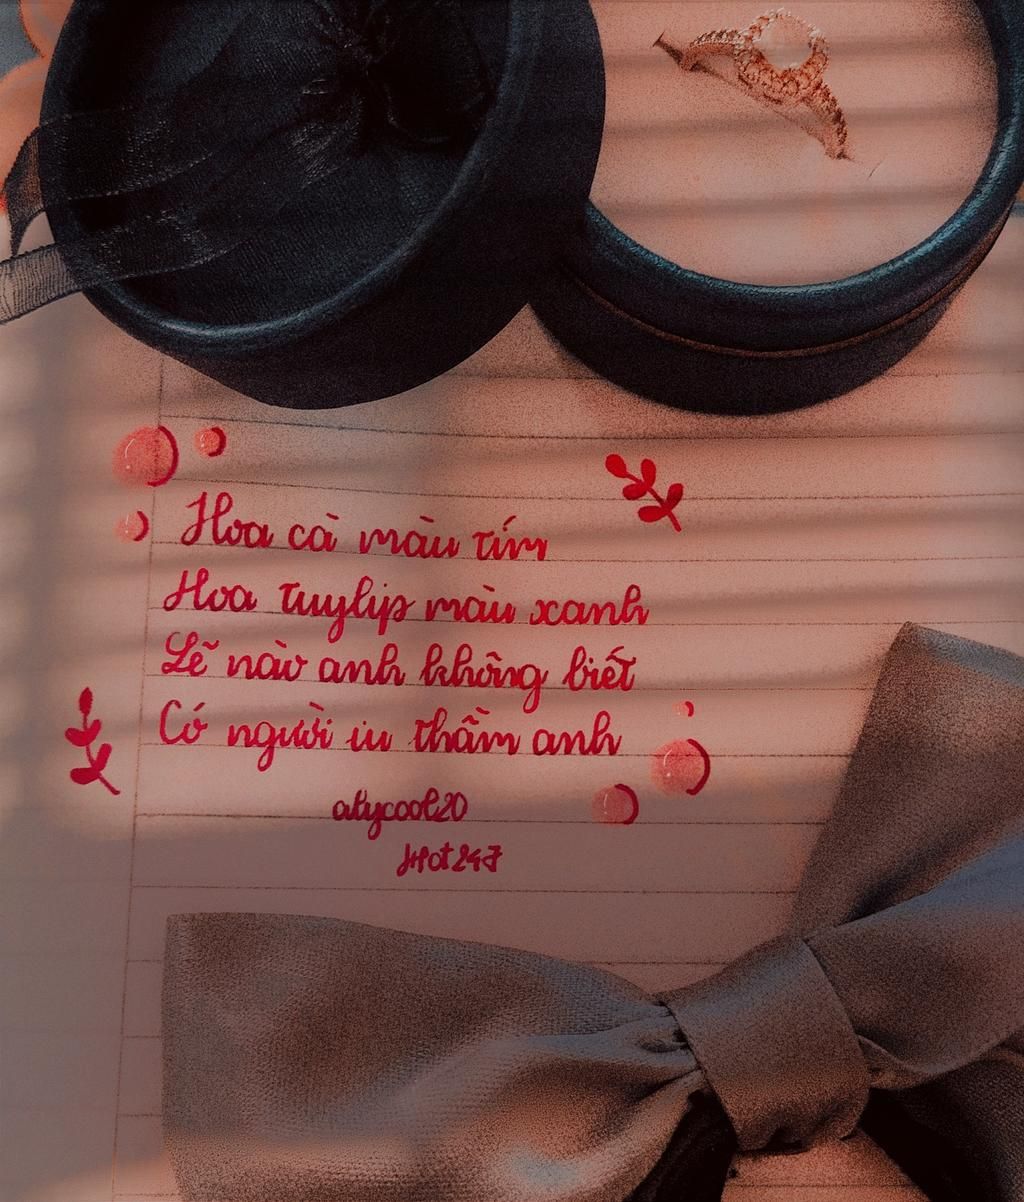 Hoa cà màu tím
Hoa tuylip màu xanh
Lẽ nào anh không biết
Có người iu thầm anh
alycool20
Hot247